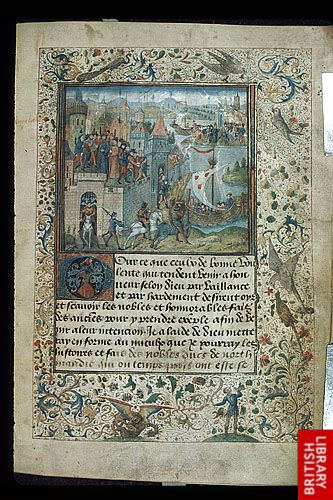 Pour ce que ceulx de bonne vou
lente qui tendent venir a hon
neur selon dieu par vaillance
et par hardement desirent oyr
et scauoir les nobles et honnorables fais
des anciens pour y prendre exemple a fin de
leur intencion. Je a laide de dieu mettr
ay en forme au mieulx que je pourray les
histoires et fais des nobles ducs de nor
mandie qui ou temps passe ont este
BRITISH
LIBRARY